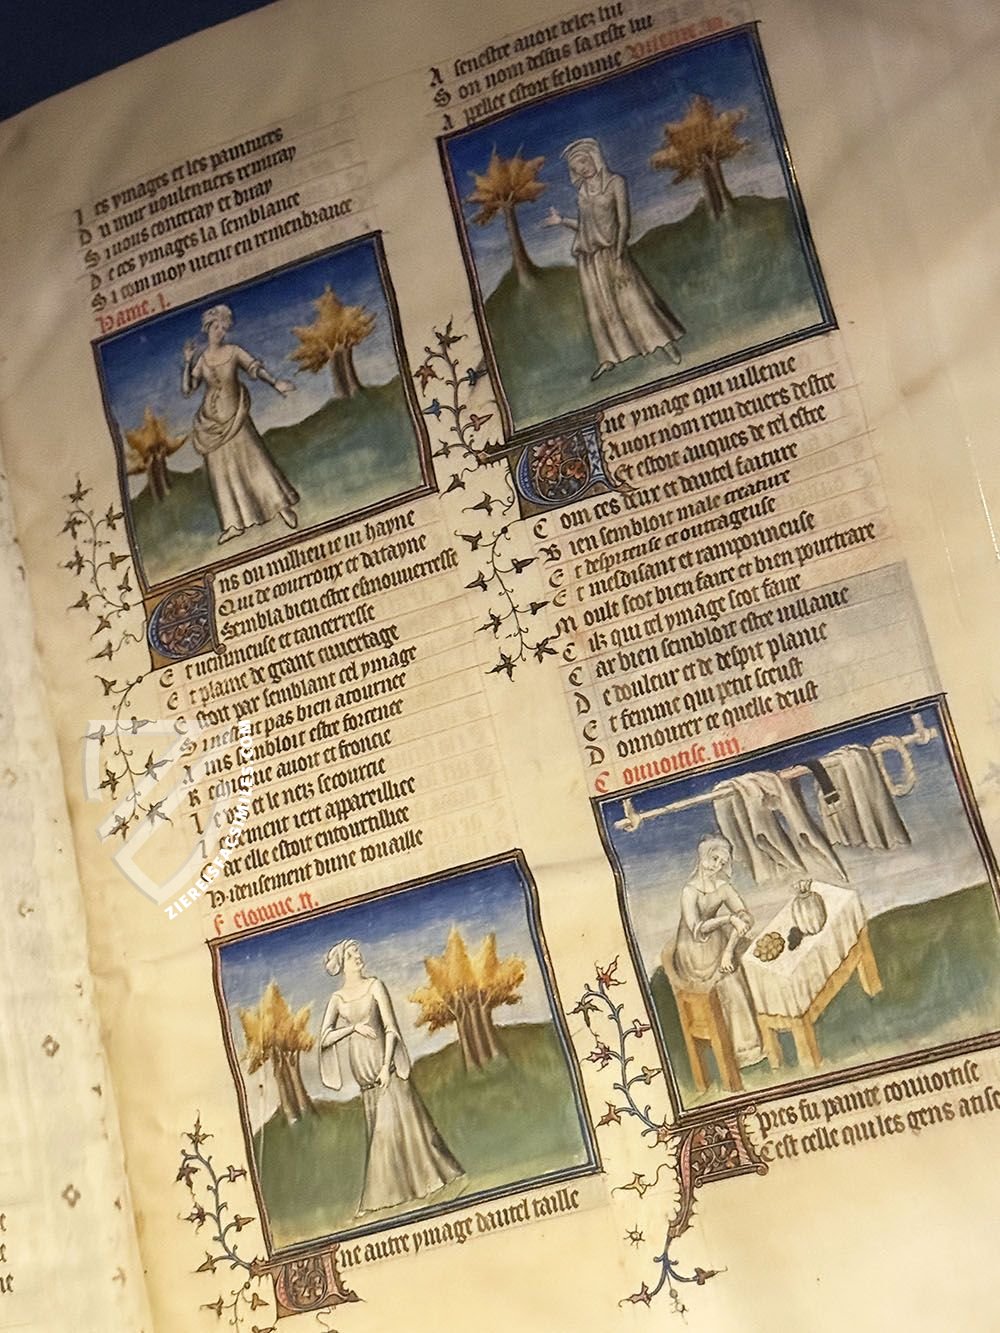 Les ymages et les paintures
Du mur uoulentiers remiray
Si uous conteray et diray
De ces ymages la semblance
Si com moy uient en remembrance
Hame. I.
Ens ou millieu ie ui hayne
Qui de courroux et datayne
Sembla bien estre esmouuerresse
Et uenimeuse et tancerresse
Et plaine de grant cuuertage
Estoit par semblant cel ymage
Si nestoit pas bien atournee
Ains sembloit estre forcenee
Rechignie auoit et froncie
Le uis et le neiz secourcie
ert appareilliee
Car elle estoit entourtilliee
Hideusement dune touaille
Felonnie. II.
Une autre ymage dautel taille
A senestre auoit delez lui
Son nom dessus sa teste lui
Apellee estoit felonnie
Une ymage qui uillenie
Auoit nom reui deuers destre
Et estoit auques de tel estre
Com ces deux et dautel faiture
Bien sembloit male creature
Et despiteuse et outrageuse
Et mesdisant et ramponneuse
Moult scot bien faire et bien pourtraire
Cilz qui tel ymage scot faire
Car bien sembloit estre uillanie
De douleur et de despit plainie
Et femme qui petit sceust
Donnourer ce quelle deust
Couuoitise. IIII.
Apres fu painte couuoitise
Cest celle qui les gens atise
ZIEREISFACSIMILES.COM